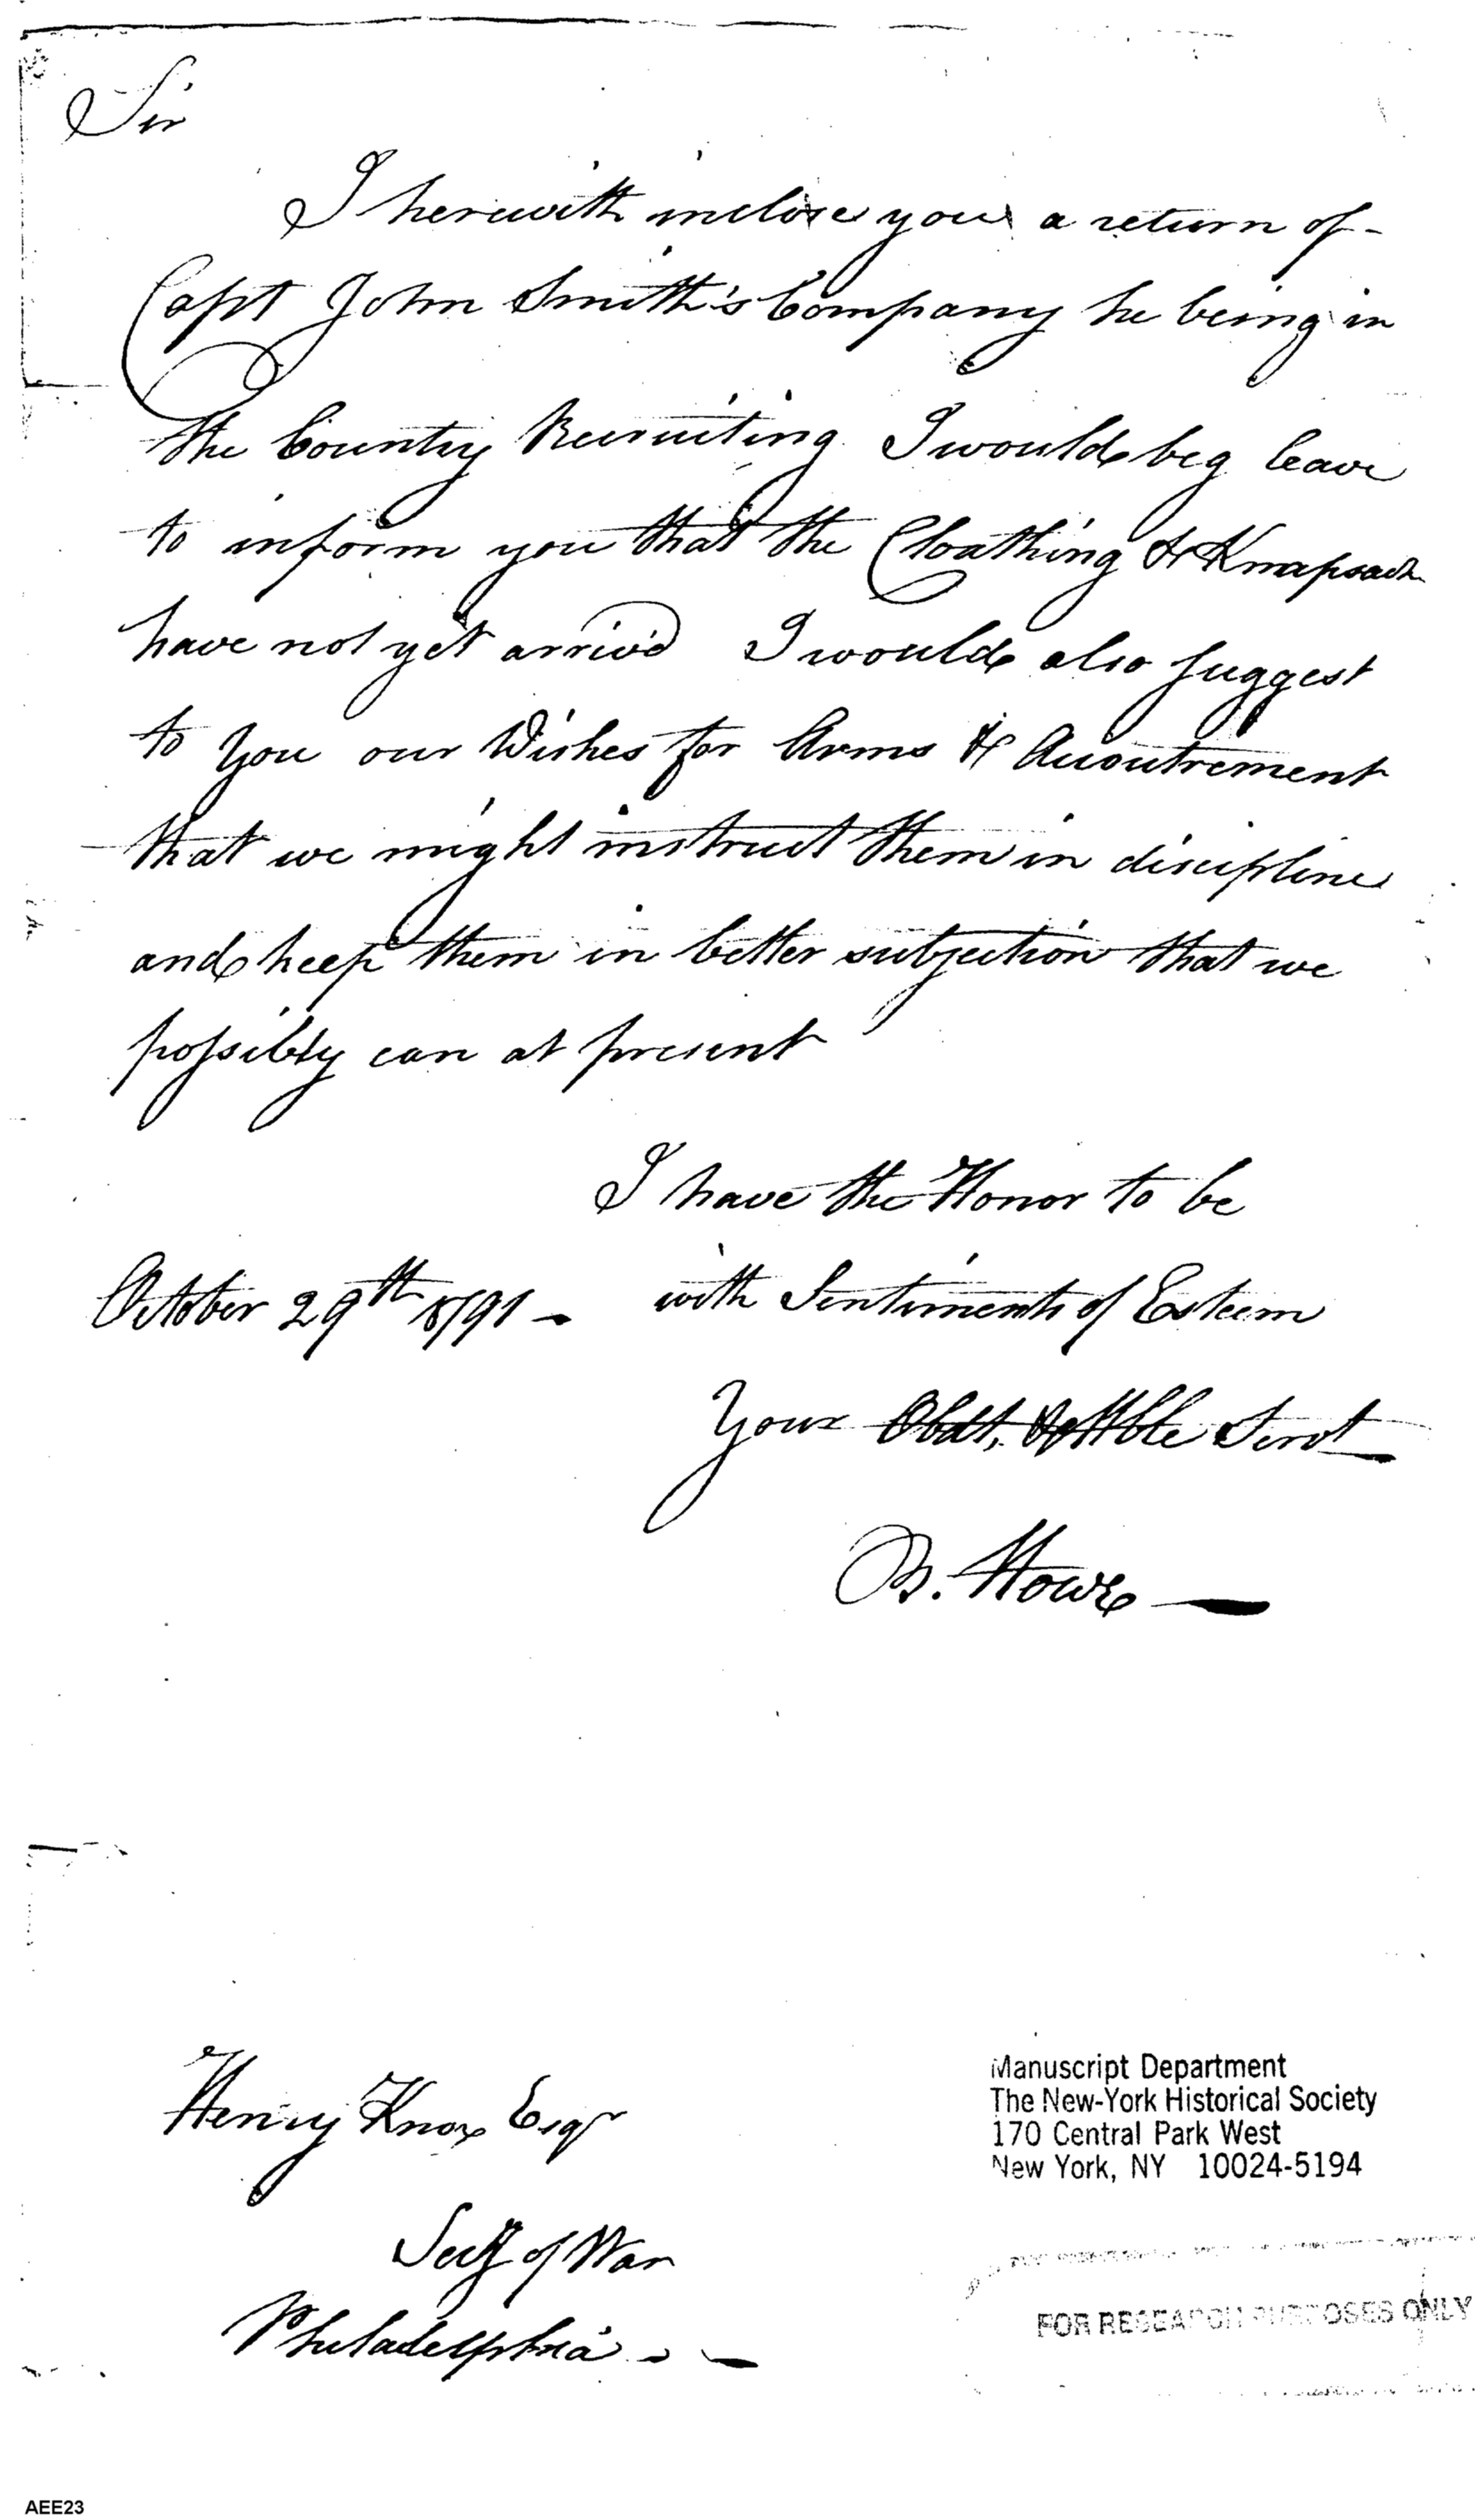 Sir
I herewith inclose you a return of -
Capt John Smith's Company he being in
the Country Recruiting I would beg leave
to inform you that the Cloathing & Knapsack
have not yet arriv'd I would also suggest
to You our Wishes for Arms & Accoutrement
that we might instruct them in discipline
and keep them in better subjection that we
possibly can at present
I have the Honor to be
October 29th 1791 - with Sentiments of Esteem
Your Obdt, & Hble Servt
B. Howe -
Henry Knox Esqr
Secy of War
Philadelphia - -
Manuscript Department
The New-York Historical Society
170 Central Park West
New York, NY 10024-5194
FOR RESEARCH PURPOSES ONLY
AEE23